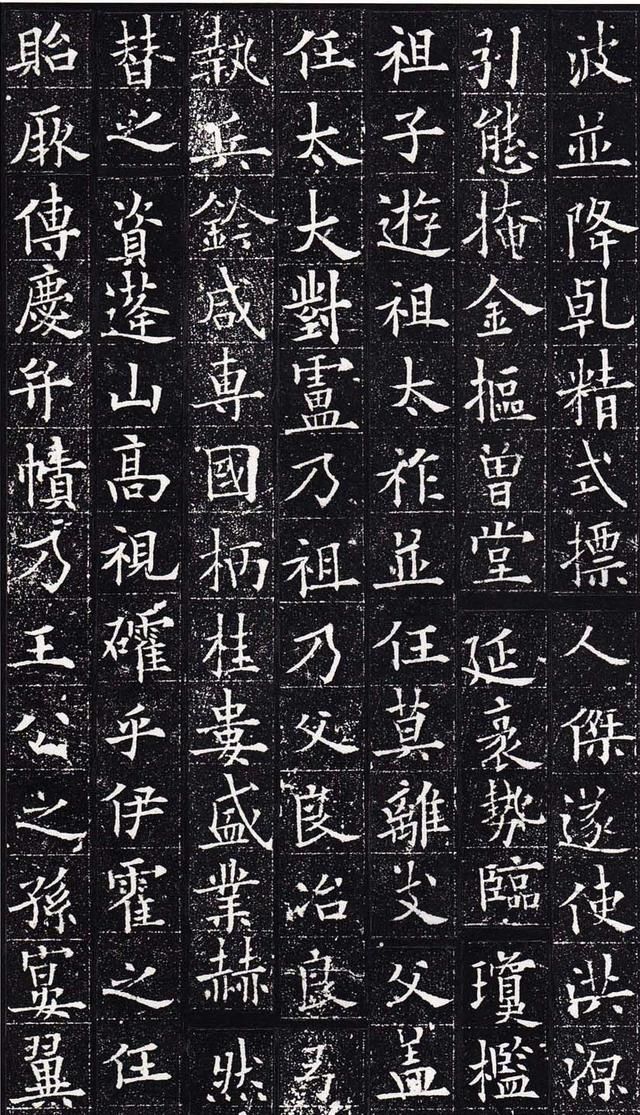 波並降乹精式摽人傑遂使洪源
引態掩金摳曾堂延袤勢臨瓊檻
祖子遊祖太祚並任莫離攴父蓋
任太大對盧乃祖乃父良冶良弓
執兵鈐咸専國柄桂婁盛業赫然
替之資蓬山高視確乎伊霍之任
貽厥傳慶弁幘乃王公之孫宴翼